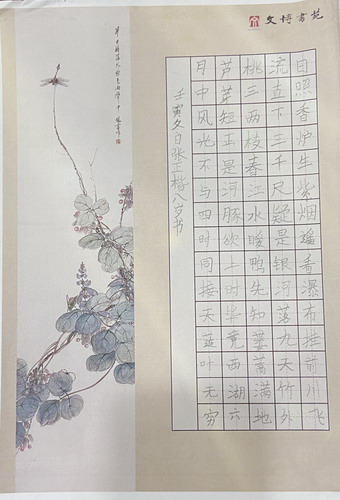 文博書苑
日照香炉生紫烟遥看瀑布挂前川飞
流直下三千尺疑是银河落九天竹外
桃三两枝春江水暖鸭先知蒌蒿满地
芦芽短正是河豚欲上时毕竟西湖六
月中风光不与四时同接天莲叶无穷
壬寅冬日张正楷八岁书